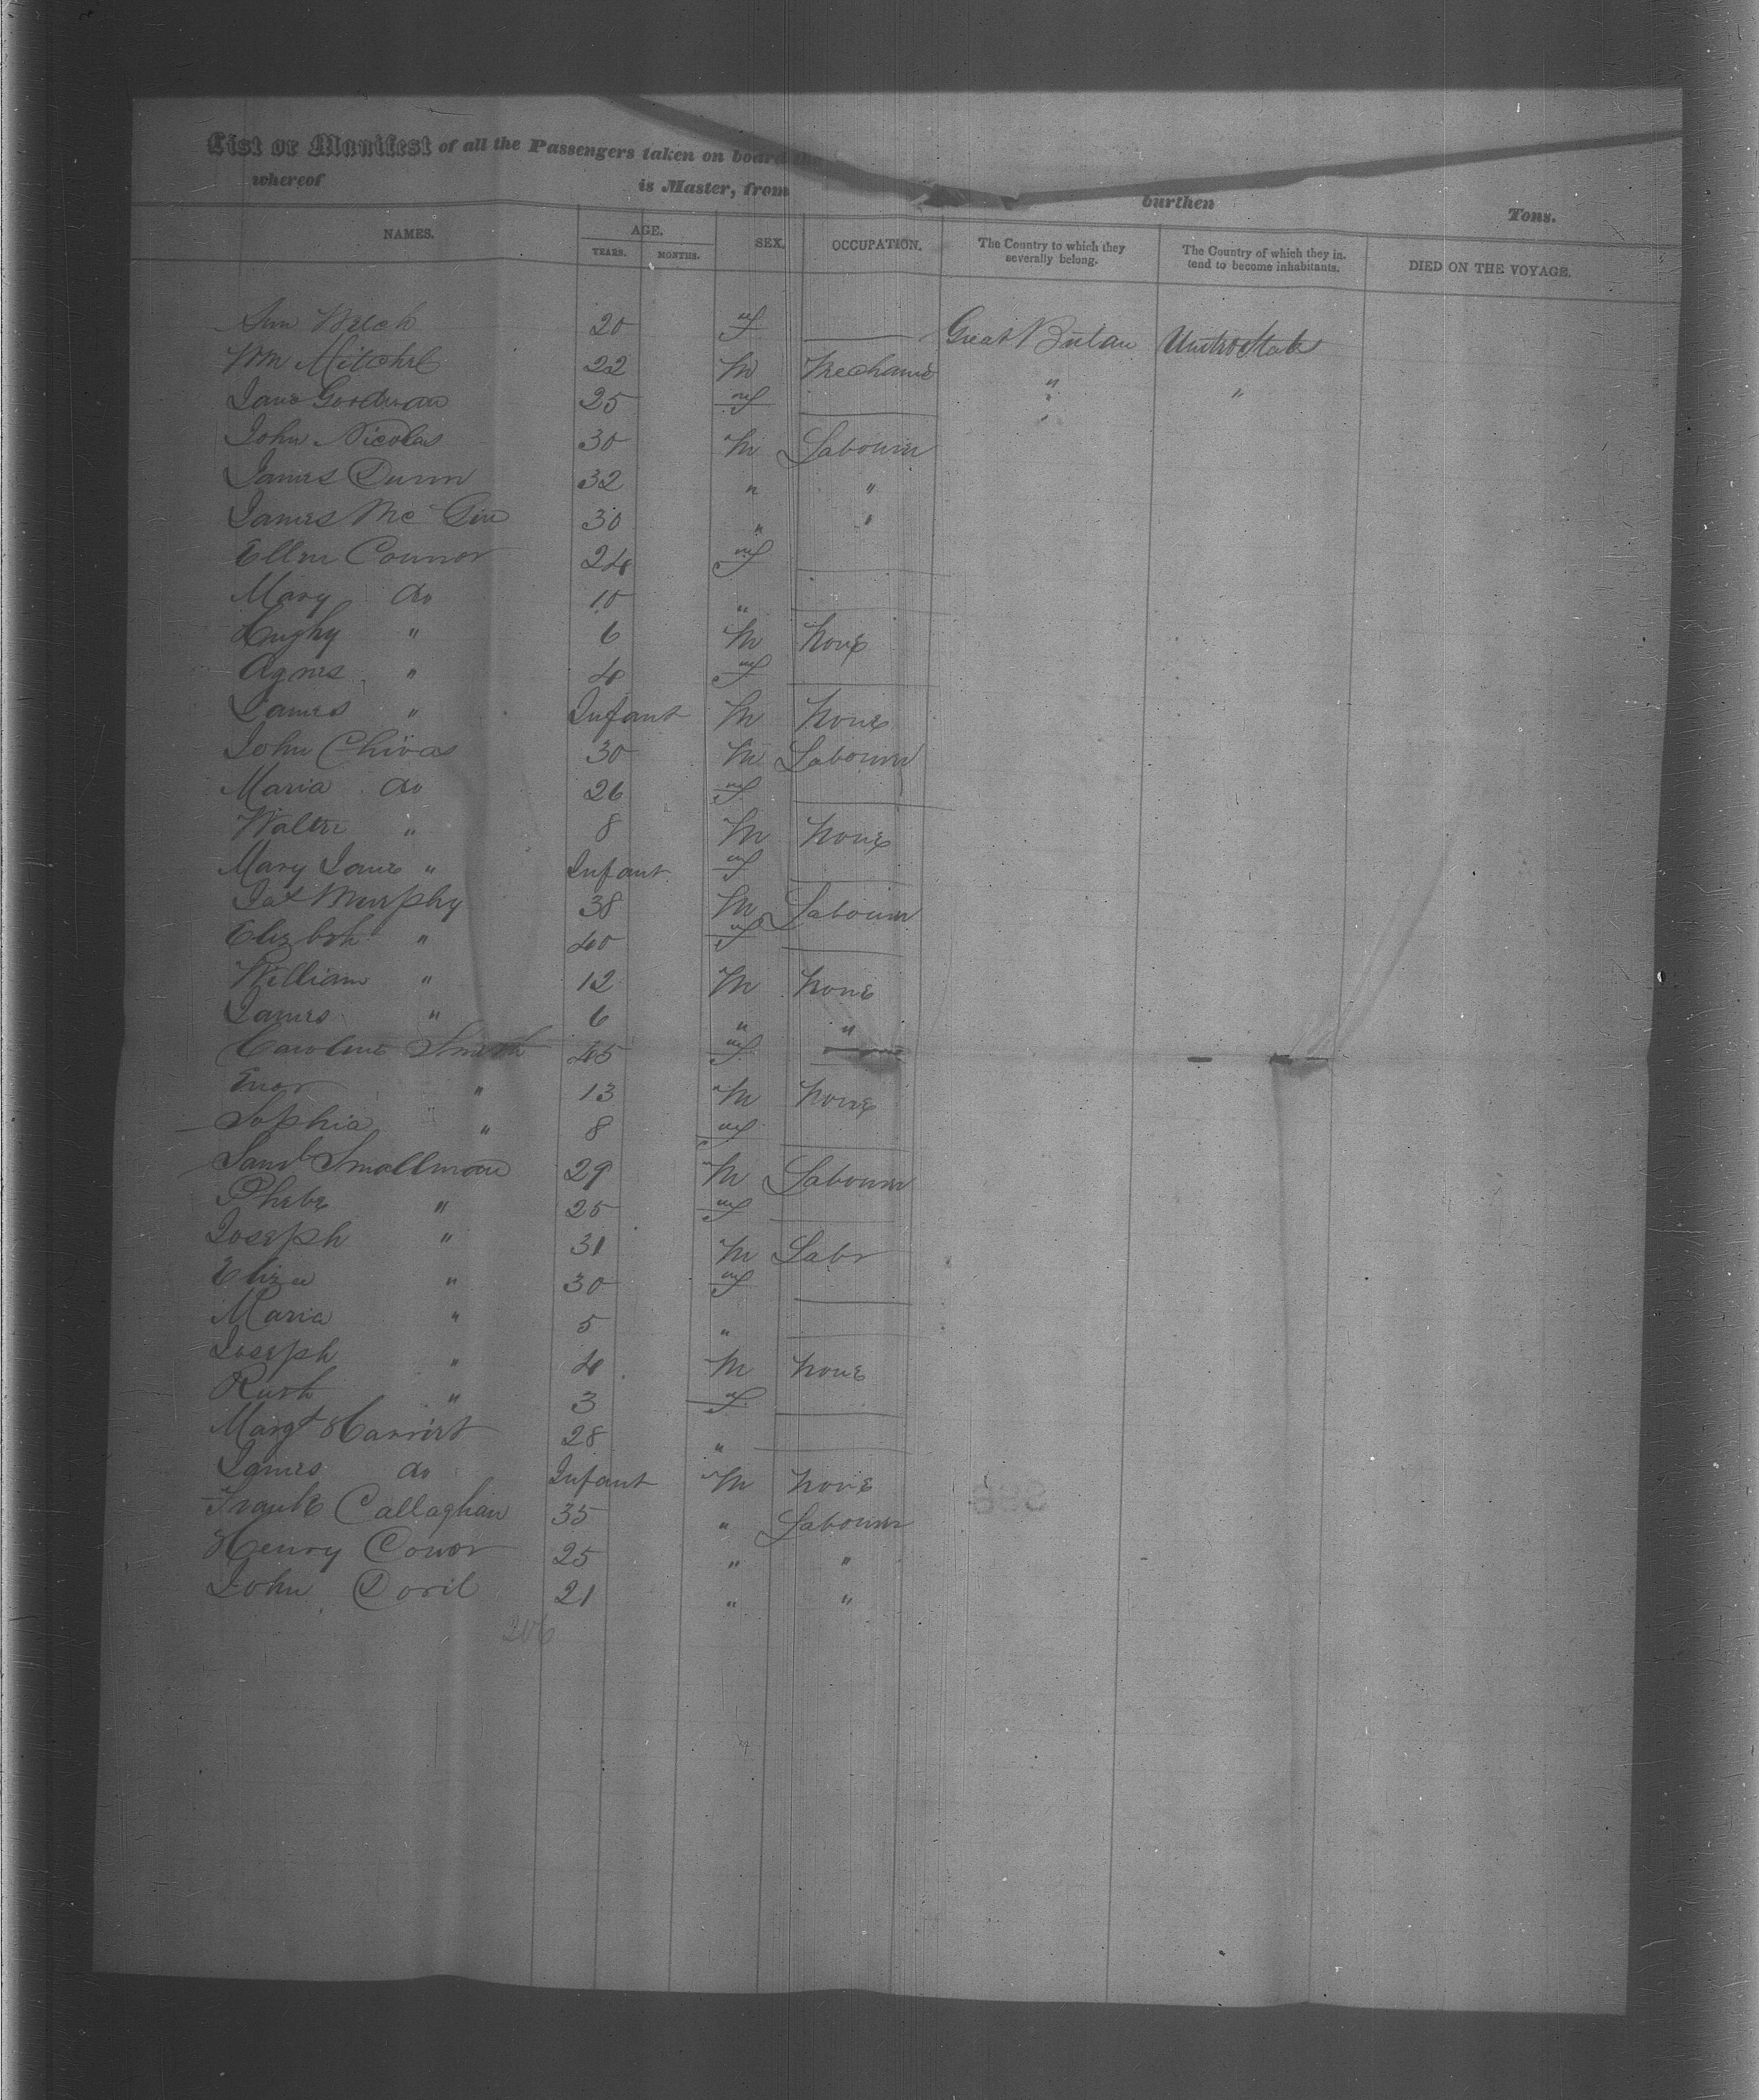 List or Manifest of all the Passengers taken on board the
whereof is Master, from burthen Tons.
NAMES. AGE. SEX. OCCUPATION. The Country to which they severally belong. The Country of which they intend to become inhabitants. DIED ON THE VOYAGE.
YEARS. MONTHS.
Ann Welch 20 f Great Britan United States
Wm Mitchel 22 M Mechanic " "
Jane Goodman 25 f "
John Nicolas 30 M Labourer
James Dunn 32 " "
James Mc 30 " "
Ellen Connor 24 f
Mary do 10 "
Hughy " 6 M None
Agnes " 4 f
James " Infant M None
John Chivas 30 M Labourer
Maria do 26 f
Walter " 8 M None
Mary Jane " Infant f
Pat Murphy 38 M Labourer
Elizbth " 40 f
William " 12 M None
James " 6 " "
Caroline Smith 45 f
" 13 M None
Sophia " 8 f
Saml Smallman 29 M Labourer
Phebe " 25 f
Joseph " 31 M Labr
Eliza " 30 f
Maria " 5 "
Joseph " 4 M None
Ruth " 3 f
Margt Harriet 28 "
James do Infant M None
Frank Callaghan 35 " Labourer
Henry Conor 25 " "
John 21 " "
206